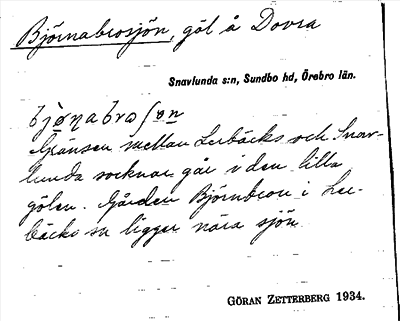 Björnabrosjön, göl å Dovra
Snavlunda s:n, Sundbo hd, Örebro län.
bjø̀ɳabraʃøn
Gränsen mellan Lerbäcks och Snav-
lunda socknar går i den lilla
gölen. Gården Björnbron i Ler-
bäcks sn ligger nära sjön.
GÖRAN ZETTERBERG 1934.